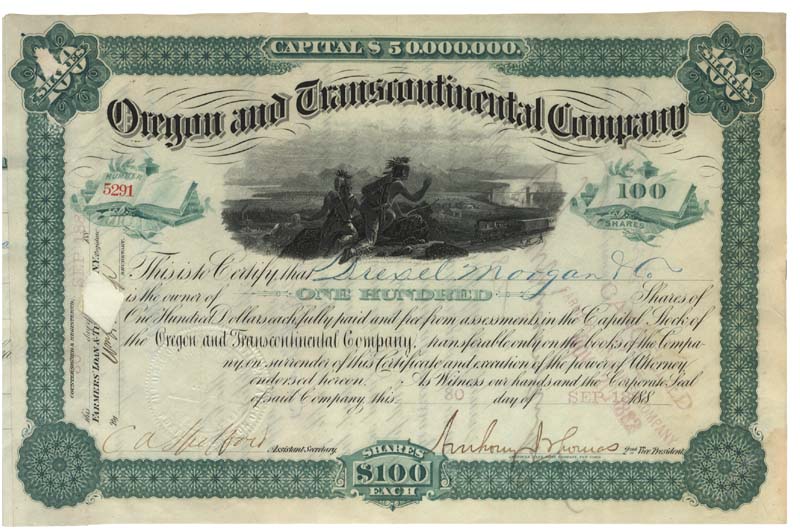 CAPITAL $50,000,000.
100
100
Oregon and Transcontinental Company
NUMBER
5291
100
SHARES
This is to Certify that Drexel Morgan & Co
is the owner of ONE HUNDRED Shares of
One Hundred Dollars each fully paid and free from assessments in the Capital Stock of
the Oregon and Transcontinental Company, transferable only on the books of the Compa-
ny, on surrender of this Certificate and execution of the power of Attorney,
endorsed hereon. As Witness our hands and the Corporate Seal
of said Company this 80 day of SEP 188
Assistant Secretary.
Anthony J Thomas 2nd Vice President.
SHARES
$100
EACH
COUNTERSIGNED & REGISTERED:
FARMERS LOAN & T
N.Y. Register
By
COMPANY